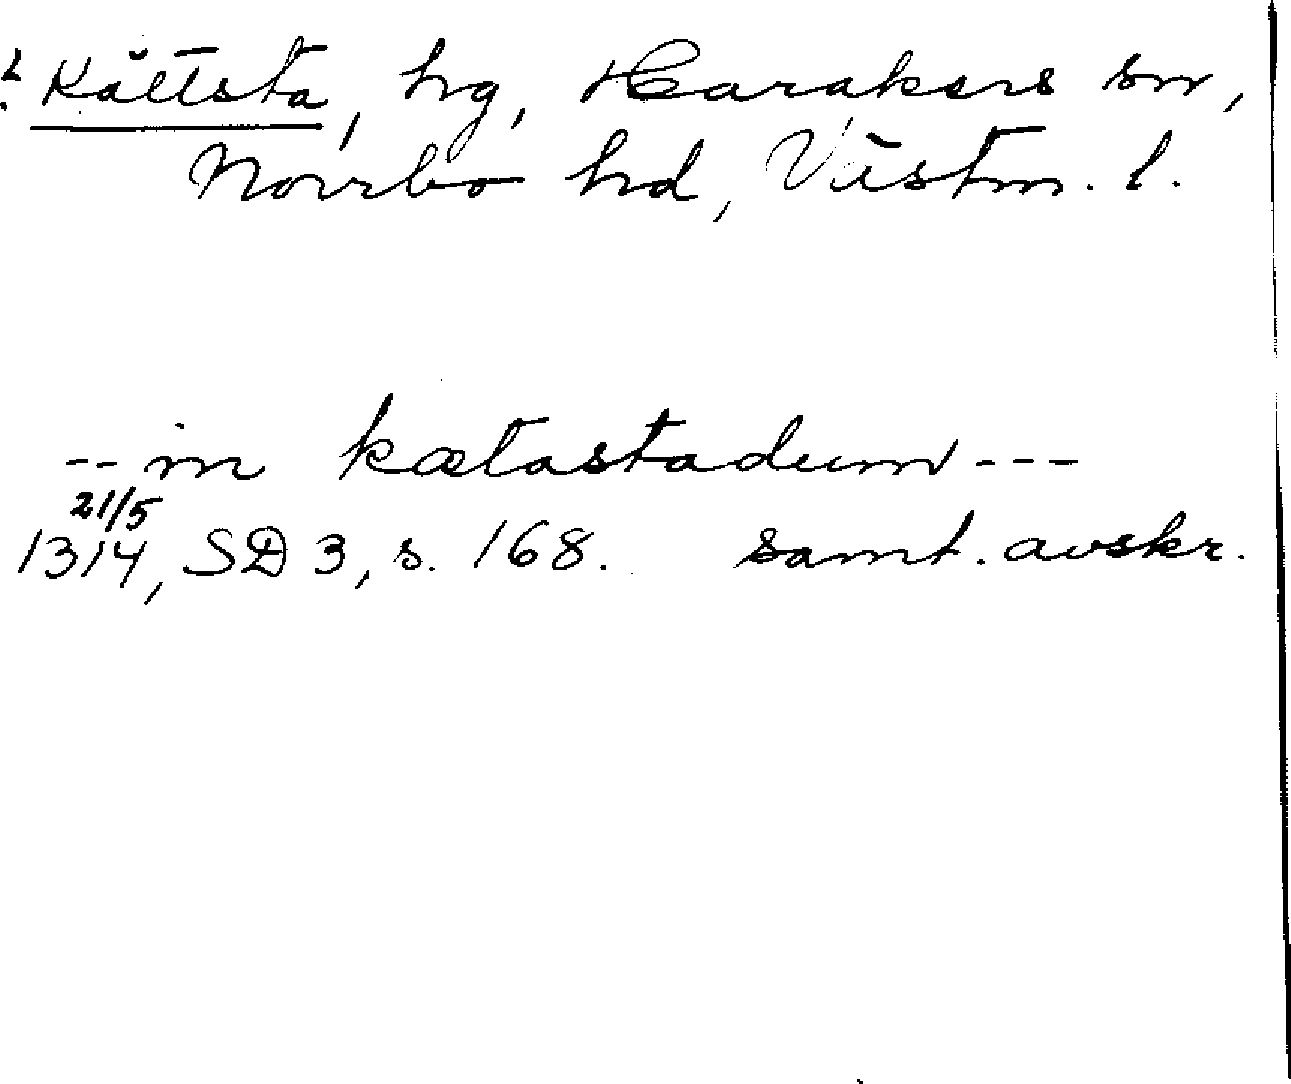 ? Kättsta, hg, Harakers sn,
Norrbo hd, Västm. l.
-- in kætastadum ---
21/5
1314, SD 3, s. 168. samt. avskr.